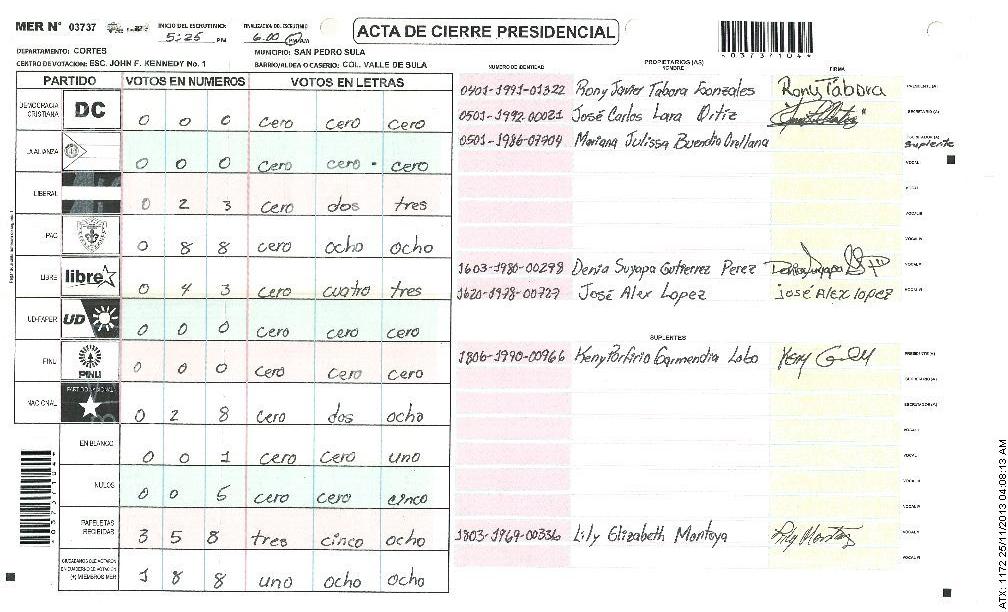 MER N° 03737 INICIO DEL ESCRUTINIO 5:25 PM FINALIZACION DEL ESCRUTINIO 6:00 PM/AM ACTA DE CIERRE PRESIDENCIAL
DEPARTAMENTO: CORTES MUNICIPIO: SAN PEDRO SULA
CENTRO DE VOTACION: ESC. JOHN F. KENNEDY No. 1 BARRIO/ALDEA O CASERIO: COL. VALLE DE SULA
PARTIDO VOTOS EN NUMEROS VOTOS EN LETRAS
DEMOCRACIA CRISTIANA DC 0 0 0 cero cero cero
LA ALIANZA 0 0 0 cero cero cero
LIBERAL 0 2 3 cero dos tres
PAC 0 8 8 cero ocho ocho
LIBRE libre 0 4 3 cero cuatro tres
UD-FAPER UD 0 0 0 cero cero cero
PINU PINU 0 0 0 cero cero cero
NACIONAL PARTIDO NACIONAL 0 2 8 cero dos ocho
EN BLANCO 0 0 1 cero cero uno
NULOS 0 0 5 cero cero cinco
PAPELETAS RECIBIDAS 3 5 8 tres cinco ocho
CIUDADANOS QUE VOTARON EN CUADERNO DE VOTACION (+) MIEMBROS MER 1 8 8 uno ocho ocho
037371044
PROPIETARIOS (AS)
NUMERO DE IDENTIDAD NOMBRE FIRMA
0401-1991-01322 Rony Javier Tabora Gonzales Rony Tabora PRESIDENTE (A)
0501-1992-00021 José Carlos Lara Ortiz SECRETARIO (A)
0501-1986-07704 Mariana Julissa Buendia Orellana ESCRUTADOR (A)
suplente
VOCAL I
VOCAL II
VOCAL III
VOCAL IV
1603-1980-00298 Denia Suyapa Gutierrez Perez VOCAL V
1620-1978-00727 José Alex Lopez José Alex lopez VOCAL VI
SUPLENTES
1806-1990-00966 Keny Porfirio Garmendia Lobo PRESIDENTE (A)
SECRETARIO (A)
ESCRUTADOR (A)
VOCAL I
VOCAL II
VOCAL III
VOCAL IV
1803-1969-00336 Lily Elizabeth Montoya VOCAL V
VOCAL VI
ATX: 1172 25/11/2013 04:08:13 AM